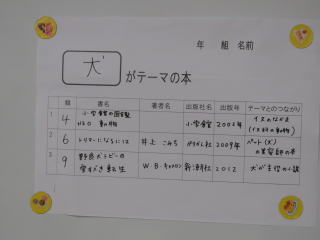 年 組 名前
犬 がテーマの本
類 書名 著者名 出版社名 出版年 テーマとのつながり
1 4 小学館の図鑑 NEO 動物 小学館 2002年 イヌのなかま (イヌ科の動物)
2 6 トリマーになるには 井上こみち ぺりかん社 2009年 ペット(犬) の美容師の本
3 9 野良犬トビーの愛すべき転生 W・B・キャメロン 新潮社 2012 犬が主役の小説